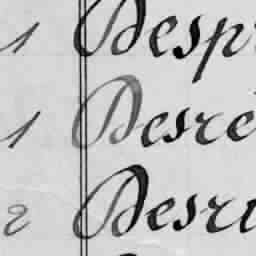 1 Desp
1 Desré
2 Desr